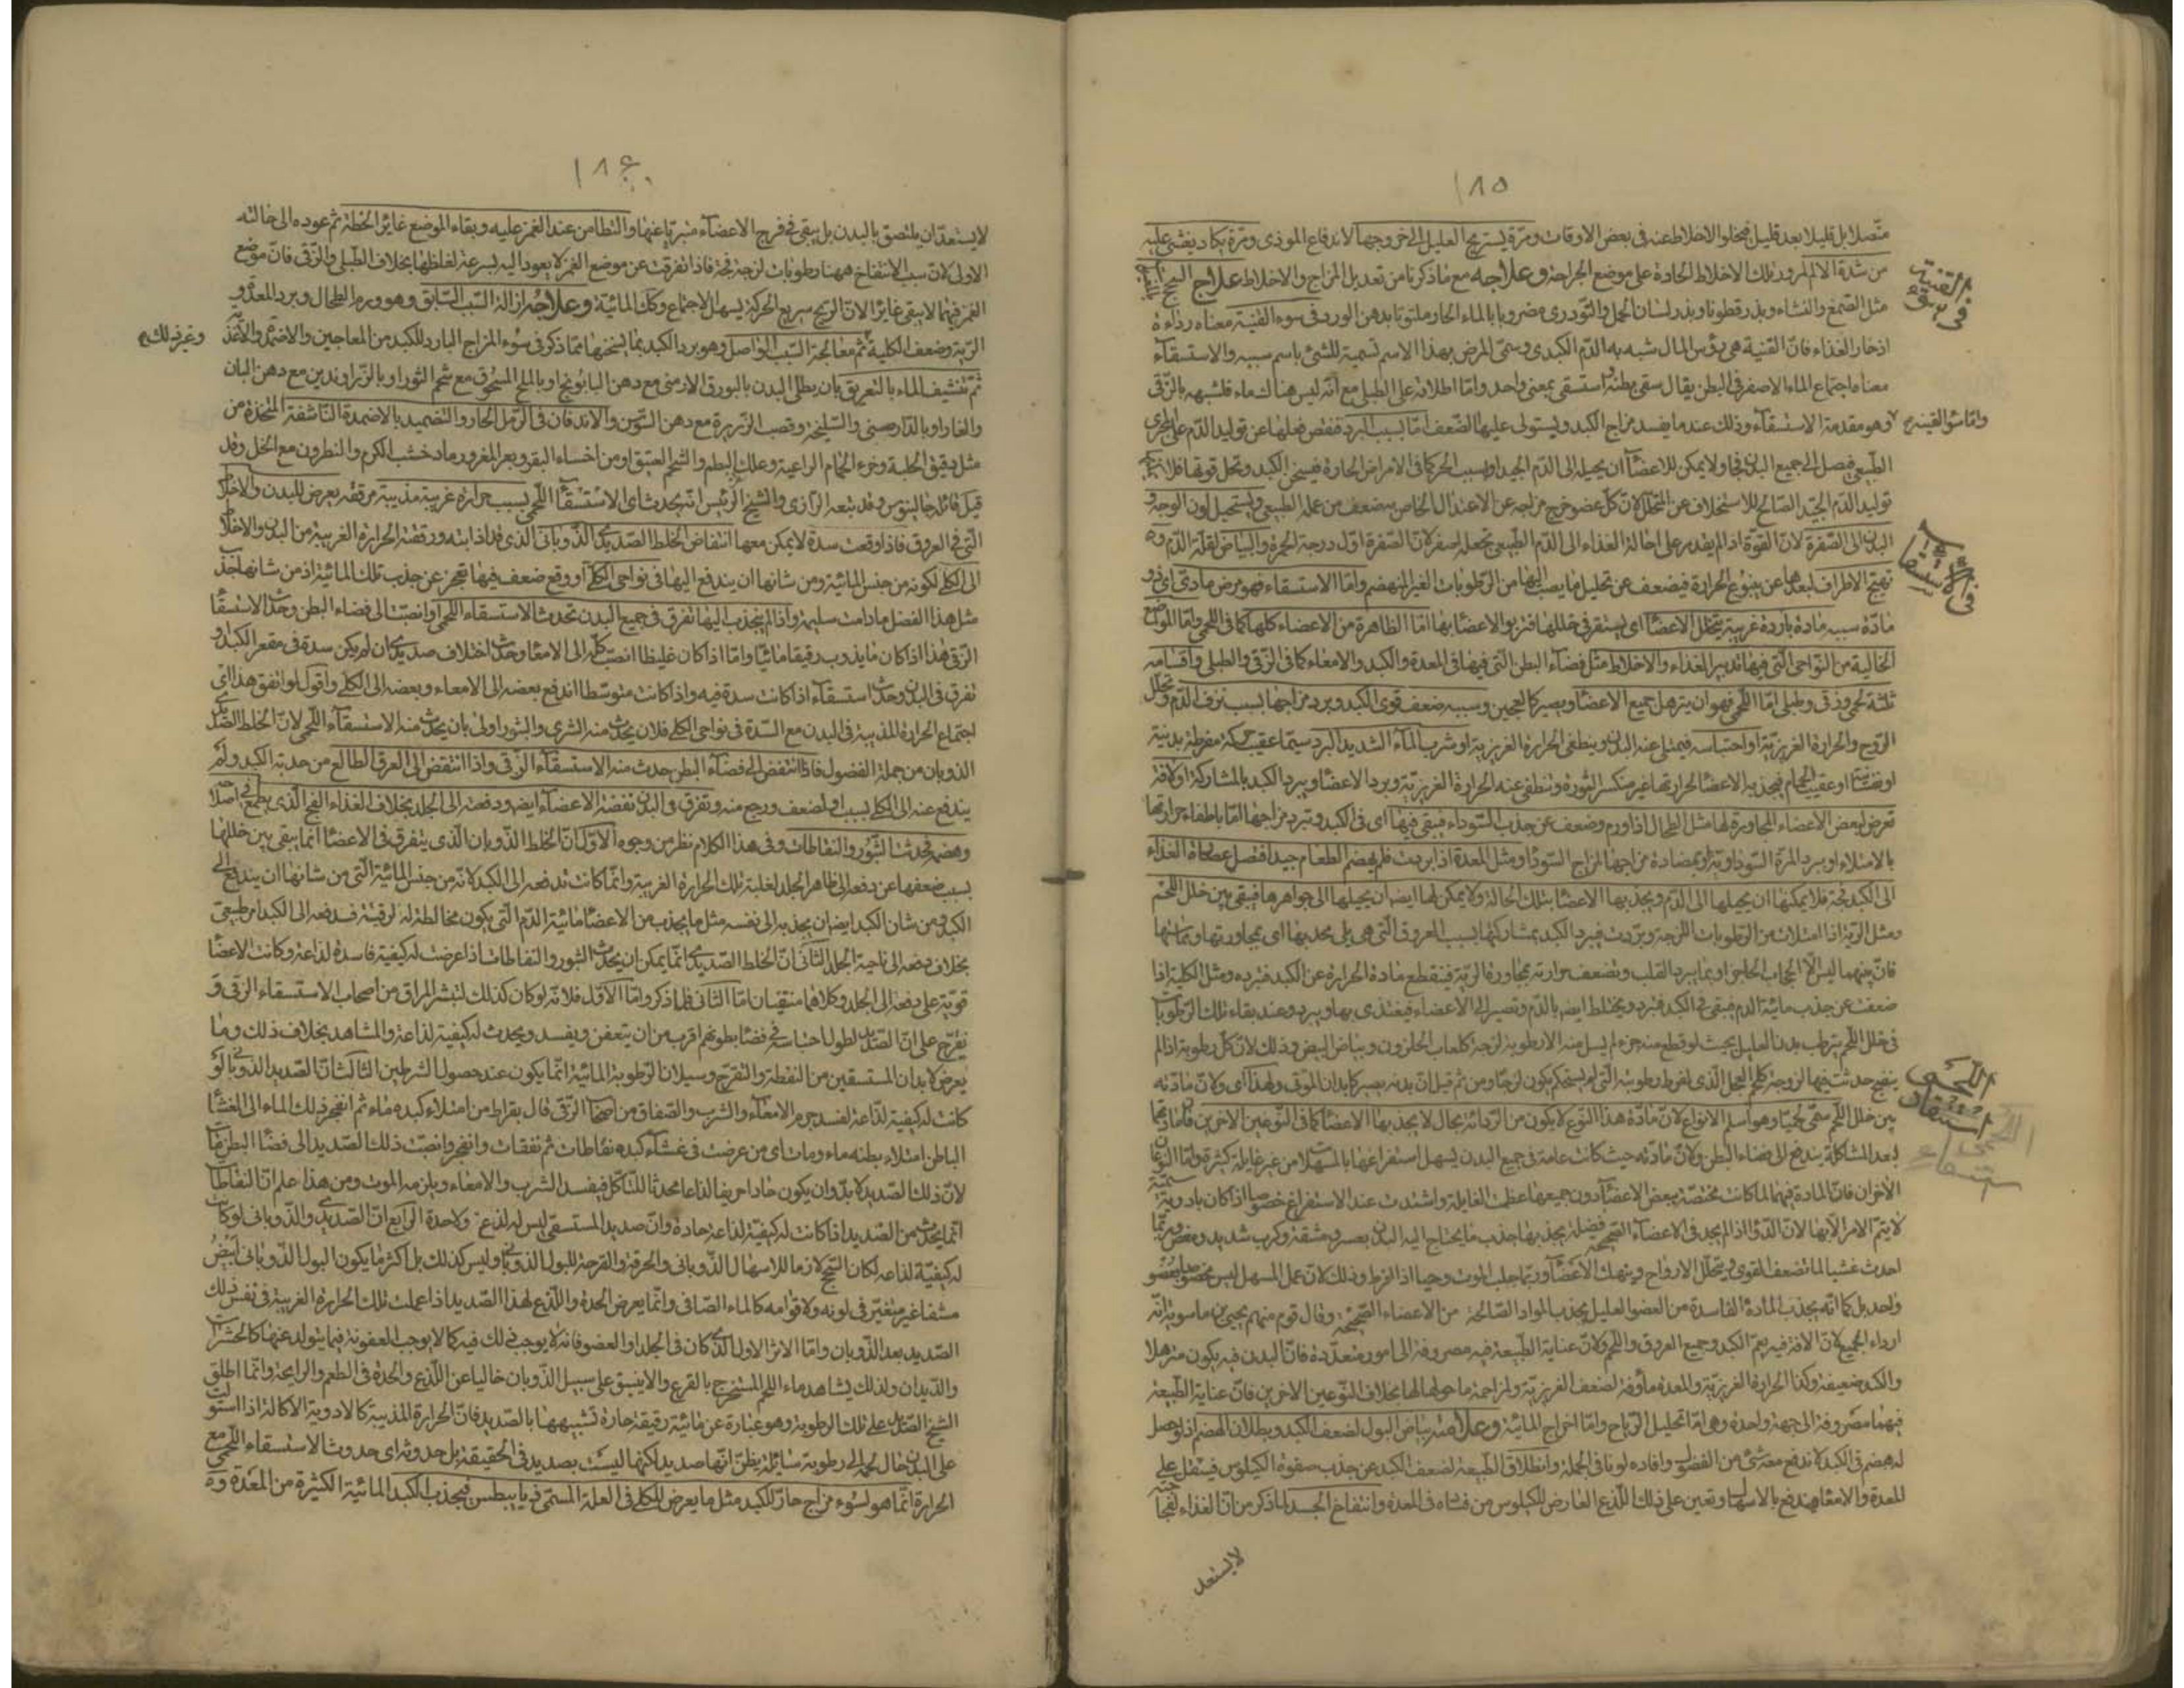 ١٨٥
متصلا بل قليلا بعد قليل فيخلو الاخلاط عنه فى بعض الاوقات ومرة يستريح العليل الى خروجها لاندفاع الموذى ومرة يكاد يغشى عليه
من شدة الالم لمرور تلك الاخلاط الحادة على موضع الجراحة وعلاجه مع ما ذكرنا من تعديل المزاج والاخلاط علاج السحج
مثل الصمغ والنشاء وبذر قطونا وبذر لسان الحمل والتودرى مضروبا بالماء الحار ملتوتا بدهن الورد فى سوء القنية معناه رداءة
ادخار الغذاء فان القنية هى رؤس المال شبه به الدم الكبدى وسمى المرض بهذا الاسم تسمية للشئ باسم سببه والاستسقاء
معناه اجتماع الماء الاصفر فى البطن يقال سقى بطنه واستسقى بمعنى واحد واما اطلاقه على الطبلى مع انه ليس هناك ماء فلشبهه بالزقى
واما سوء القينة
وهو مقدمة الاستسقاء وذلك عندما يفسد مزاج الكبد ويستولى عليها الضعف اما بسبب البرد فنقص فعلها عن توليد الدم على المجرى
الطبيعى فصل الى جميع البدن ولا يمكن للاعضاء ان يحيله الى الدم الجيد او بسبب الحر كما فى الامراض الحارة فيسخن الكبد وتحل قوتها فلا
توليد الدم الجيد الصالح للاستخلاف عن المتحلل لان كل عضو خرج مزاجه عن الاعتدال الخاص به ضعف من عمله الطبيعى ويستحيل لون الوجه و
البدن الى الصفرة لان القوة اذا لم يقدر على احالة الغذاء الى الدم الطبيعى تجعله اصفر لان الصفرة اول درجة الحمرة والبياض لقلة الدم و
تهيج الاطراف لبعدها عن ينبوع الحرارة فيضعف عن تحليل ما يصب اليها من الرطوبات الغير المنهضم واما الاستسقاء فهو مرض مادى اى ذو
مادة سببه مادة باردة غريبة يتخلل الاعضاء اى يستقر فى خللها فتربو الاعضاء بها اما الظاهرة من الاعضاء كلها كما فى اللحمى واما المواضع
الخالية من النواحى التى فيها تدبير الغذاء والاخلاط مثل فضاء البطن التى فيها فى المعدة والكبد والامعاء كما فى الزقى والطبلى واقسامه
ثلثة لحمى وزقى وطبلى اما اللحمى فهو ان يترهل جميع الاعضاء ويصير كالعجين وسببه ضعف قوى الكبد وبرد مزاجها بسبب نزف الدم وتحلل
الروح والحرارة الغريزية او احتباسه فيمتلى عنه البدن وينطفى الحرارة الغريزية او شرب الماء الشديد البرد سيما عقيب حركة مفرطة بدنية
او عقيب الحمام فيجذبه الاعضاء لحرارتها غير منكسر الثورة وتنطفى عنه الحرارة الغريزية ويبرد الاعضاء ويبرد الكبد بالمشاركة او لافة
تعرض لبعض الاعضاء المجاورة لها مثل الطحال اذا ورم وضعف عن جذب السوداء فبقى فيها اى فى الكبد وتبرد مزاجها اما باطفاء حرارتها
بالامتلاء او ببرد المرة السوداوية او بمضادة مزاجها المزاج السوداء ومثل المعدة اذا بردت فلم يهضم الطعام جيدا فتصل عصارة الغذاء
الى الكبد فجة فلا يمكنها ان يحيلها الى الدم ويجذبها الاعضاء بتلك الحالة ولا يمكن لها ايضا ان يحيلها الى جواهرها فيبقى بين خلل اللحم
ومثل الرية اذا امتلات من الرطوبات اللزجة وبردت فبرد الكبد بمشاركتها بسبب العروق التى هى يلى محدبها اى بمجاورتها
فان بينهما ليس الا الحجاب الحاجز او بما يبرد القلب وتضعف حرارته بمجاورة الرية فينقطع مادة الحرارة عن الكبد فتبرده ومثل الكلية اذا
ضعفت عن جذب مائية الدم فيبقى فى الكبد فتبرد ويختلط ايضا بالدم وتصير الى الاعضاء فيغتذى بها ويبرد وعند بقاء تلك الرطوبات
فى خلل اللحم يترطب بدن العليل بحيث لو قطع منه جزء لم يسل منه الا رطوبة لزجة كلعاب الحلزون وبياض البيض وذلك لان كل رطوبة اذا لم
ينضج حدثت فيها لزوجة كلحم العجل الذى لفرط رطوبته التى لم يستحكم يكون لزجا ومن ثم قيل ان بدنه يصير كابدان الموتى ولهذا اى ولان مادته
بين خلل اللحم سمى لحميا وهو اسلم الانواع لان مادة هذا النوع لا يكون من الرداءة بحال لا يجذبها الاعضاء كما فى النوعين الاخرين
لبعد المشاكلة يندفع الى فضاء البطن ولان مادته حيث كانت عامة فى جميع البدن يسهل استفراغها بالمسهلات من غير غايلة كثيرة واما النوعان
الاخران فان المادة فيهما لما كانت مختصة ببعض الاعضاء دون جميعها عظمت الغايلة واشتدت عند الاستفراغ خصوصا اذا كان بادوية سمية
لا يتم الامر الا بها لان الدواء اذا لم يجد فى الاعضاء الصحيحة فضلة يجذبها جذب ما يحتاج اليه البدن بعسر ومشقة وكرب شديد وربما
احدث غشيا لما تضعف القوى ويتحلل الارواح وينهك الاعضاء وربما جلب الموت وحيا اذا افرط وذلك لان عمل المسهل ليس مخصوصا بعضو
واحد بل كما انه يجذب المادة الفاسدة من العضو العليل يجذب المواد الصالحة من الاعضاء الصحيحة وقال قوم منهم يحيى بن ماسويه انه
ارداء الجميع لان الافة فيه يعم الكبد وجميع العروق واللحم ولان عناية الطبيعة فيه مصروفة الى امور متعددة فان البدن فيه يكون مترهلا
والكبد ضعيفة وكذا الحرارة الغريزية والمعدة ماؤفة لضعف الغريزية ولمزاحمة ما حولها لها بخلاف النوعين الاخرين فان عناية الطبيعة
فيهما مصروفة الى جهة واحدة وهى اما تحليل الرياح واما اخراج المائية وعلامته بياض البول لضعف الكبد وبطلان الهضم اذ لو حصل
له هضم فى الكبد لاندفع معه شئ من الفضول وافاده لونا فى الجملة وانطلاق الطبيعة لضعف الكبد عن جذب صفوة الكيلوس فيثقل على
المعدة والامعاء فيندفع بالاسهال وتعين على ذلك اللذع العارض للكيلوس من فساده فى المعدة وانتفاخ الجسد لما ذكر من ان الغذاء لفجاجته
لا يستعد
فى سوء القنية
فى الاستسقاء
استسقاء اللحمى
١٨٦
لا يستعد ان يلتصق بالبدن بل يبقى فى فرج الاعضاء متبريا عنها والتطامن عند الغمز عليه وبقاء الموضع غايرا لحظة ثم عوده الى حالته
الاولى لان سبب الانتفاخ ههنا رطوبات لزجة فجة فاذا تفرقت عن موضع الغمز لا يعود اليه بسرعة لغلظها بخلاف الطبلى والزقى فان موضع
الغمز فيهما لا يبقى غايرا لان الريح سريع الحركة يسهل الاجتماع وكذا المائية وعلاجه ازالة السبب السابق وهو ورم الطحال وبرد المعدة و
الرية وضعف الكلية ثم معالجة السبب الواصل وهو برد الكبد بما يسخنها مما ذكر فى سوء المزاج البارد للكبد من المعاجين والاضمدة والاغذية
وغير ذلك
ثم تنشيف الماء بالتعريق بان يطلى البدن بالبورق الارمنى مع دهن البابونج او بالملح المسحوق مع شحم الثور او بالزراوندين مع دهن البان
والغار او بالدارصينى والسليخة وقصب الزريرة مع دهن السوسن والاندفان فى الرمل الحار والتضميد بالاضمدة الناشفة المتخذة من
مثل دقيق الحلبة وخرء الحمام الراعية وعلك البطم والشحم العتيق او من اخثاء البقر وبعر المعز ورماد خشب الكرم والنطرون مع الخل وقد
قيل قائله جالينوس وقد تبعه الرازى والشيخ الرئيس انه يحدث اى الاستسقاء اللحمى بسبب حرارة غريبة مذيبة مرققة يعرض للبدن والاخلاط
التى فى العروق فاذا وقعت سدة لا يمكن معها انتفاض الخلط الصديدى الذوبانى الذى قد اذابته ورققته الحرارة الغريبة من البدن والاخلاط
الى الكلى لكونه من جنس المائية ومن شانها ان يندفع اليها فى نواحى الكلى او وقع ضعف فيها تعجز عن جذب تلك المائية اذ من شانها جذب
مثل هذا الفضل ما دامت سليمة واذا لم ينجذب اليها تفرق فى جميع البدن تحدث الاستسقاء اللحمى او انصبت الى فضاء البطن وحدث الاستسقاء
الزقى هذا اذا كان ما يذوب رقيقا مائيا واما اذا كان غليظا انصب كله الى الامعاء وحدث اختلاف صديدى ان لم يكن سدة فى مقعر الكبد و
تفرق فى البدن وحدث استسقاء اذا كانت سدة فيه واذا كانت متوسطا اندفع بعضه الى الامعاء وبعضه الى الكلى واقول لو اتفق هذا اى
اجتماع الحرارة المذيبة فى البدن مع السدة فى نواحى الكلى فلان يحدث منه الشرى والبثور اولى بان يحدث منه الاستسقاء اللحمى لان الخلط الصديدى
الذوبان من جملة الفضول فاذا انتفض الى فضاء البطن حدث منه الاستسقاء الزقى واذا انتفض الى العرق الطالع من حدبة الكبد ولم
يندفع عنه الى الكلى بسبب او لضعف ورجع منه وتفرق فى البدن نفضته الاعضاء ايضا ودفعته الى الجلد بخلاف الغذاء الفج الذى
وهضم تحدث البثور والنفاطات وفى هذا الكلام نظر من وجوه الاول ان الخلط الذوبان الذى يتفرق فى الاعضاء انما يبقى بين خللها
بسبب ضعفها عن دفعه الى ظاهر الجلد لغلبة تلك الحرارة الغريبة وانما كانت تدفعه الى الكبد لانه من جنس المائية التى من شانها ان يندفع الى
الكبد ومن شان الكبد ايضا ان يجذبه الى نفسه مثل ما يجذب من الاعضاء مائية الدم التى يكون مخالطة له لرقته فدفعه الى الكبد امر طبيعى
بخلاف دفعه الى ناحية الجلد الثانى ان الخلط الصديدى انما يمكن ان يحدث البثور والنفاطات اذا عرضت له كيفية فاسدة لذاعة وكانت الاعضاء
قوية على دفعه الى الجلد وكلاهما منتفيان اما الثانى فلما ذكر واما الاول فلانه لو كان كذلك لتبثر المراق من اصحاب الاستسقاء الزقى و
تقرح على ان الصديد لطول احتباسه فى فضاء بطونهم اقرب من ان يتعفن ويفسد ويحدث له كيفية لذاعة والمشاهد بخلاف ذلك وما
يعرض لابدان المستسقين من النفطة والتقرح وسيلان الرطوبة المائية انما يكون عند حصول الشرطين الثالث ان الصديد الذوبانى لو
كانت له كيفية لذاعة لفسد جرم الامعاء والثرب والصفاق من اصحاب الزقى قال بقراط من امتلاء كبده ماء ثم انفجر ذلك الماء الى الغشاء
الباطن امتلاء بطنه ماء ومات اى من عرضت فى غشاء كبده نفاطات ثم تفقات وانفجر وانصبت ذلك الصديد الى فضاء البطن مات
لان ذلك الصديد لا بد وان يكون حادا حريفا لذاعا محدثا للتاكل فيفسد الثرب والامعاء ويلزمه الموت ومن هذا علم ان النفاطات
انما يحدث من الصديد اذا كانت له كيفية لذاعة حادة وان صديد المستسقى ليس له لذع ولا حدة الرابع ان الصديدى والذوبانى لو كانت
له كيفية لذاعة لكان السحج لازما للاسهال الذوبانى والحرقة والقرحة للبول الذوبانى وليس كذلك بل اكثر ما يكون البول الذوبانى ابيض
مشفا غير متغير فى لونه ولا قوامه كالماء الصافى وانما يعرض الحدة واللذع لهذا الصديد اذا عملت تلك الحرارة الغريبة فى نفس ذلك
الصديد بعد الذوبان واما الاثر الاول الذى كان فى الجلد او العضو فانه لا يوجب ذلك فيه كما لا يوجب العفونة فيما يتولد عنها كالحشرات
والديدان ولذلك يشاهد ماء اللحم المستخرج بالقرع والانبيق على سبيل الذوبان خاليا عن اللذع والحدة فى الطعم والرايحة وانما اطلق
الشيخ الصديد على تلك الرطوبة وهو عبارة عن مائية رقيقة حارة تشبيهها بالصديد فان الحرارة المذيبة كالادوية الاكالة اذا استولت
على البدن احال لحمه الى رطوبة سائلة يظن انها صديد لكنها ليست بصديد فى الحقيقة بل حدوثه اى حدوث الاستسقاء اللحمى مع
الحرارة انما هو لسوء مزاج حار للكبد مثل ما يعرض للكلى فى العلة المسمى ذيابيطس فيجذب الكبد المائية الكثيرة من المعدة و